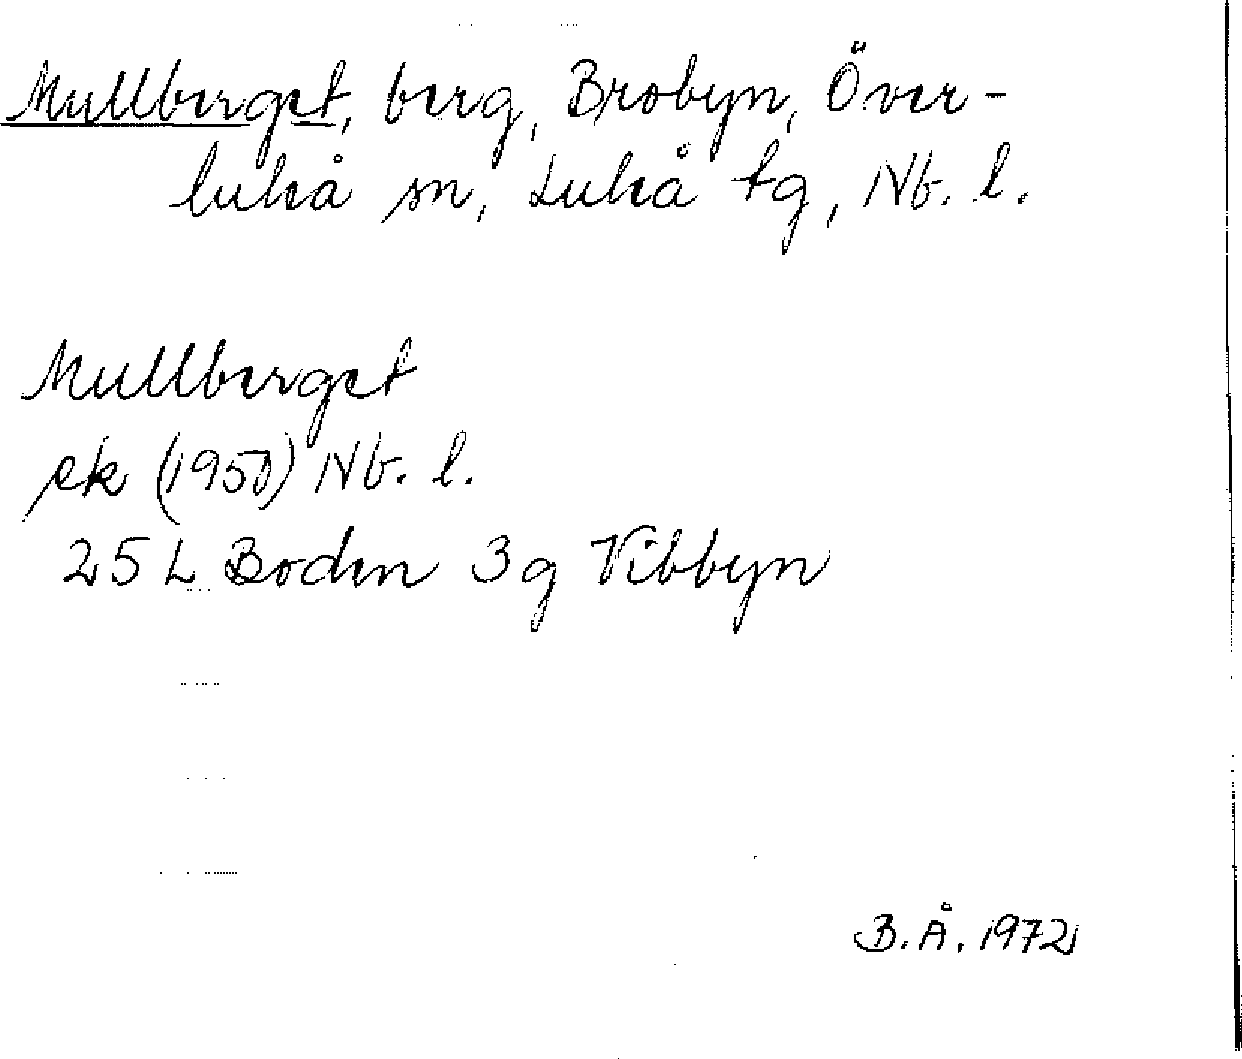 Mullberget, berg, Brobyn, Över-
luleå sn, Luleå tg, Nb. l.
Mullberget
ek (1950) Nb. l.
25 L Boden 3g Vibbyn
B. Å. 1972